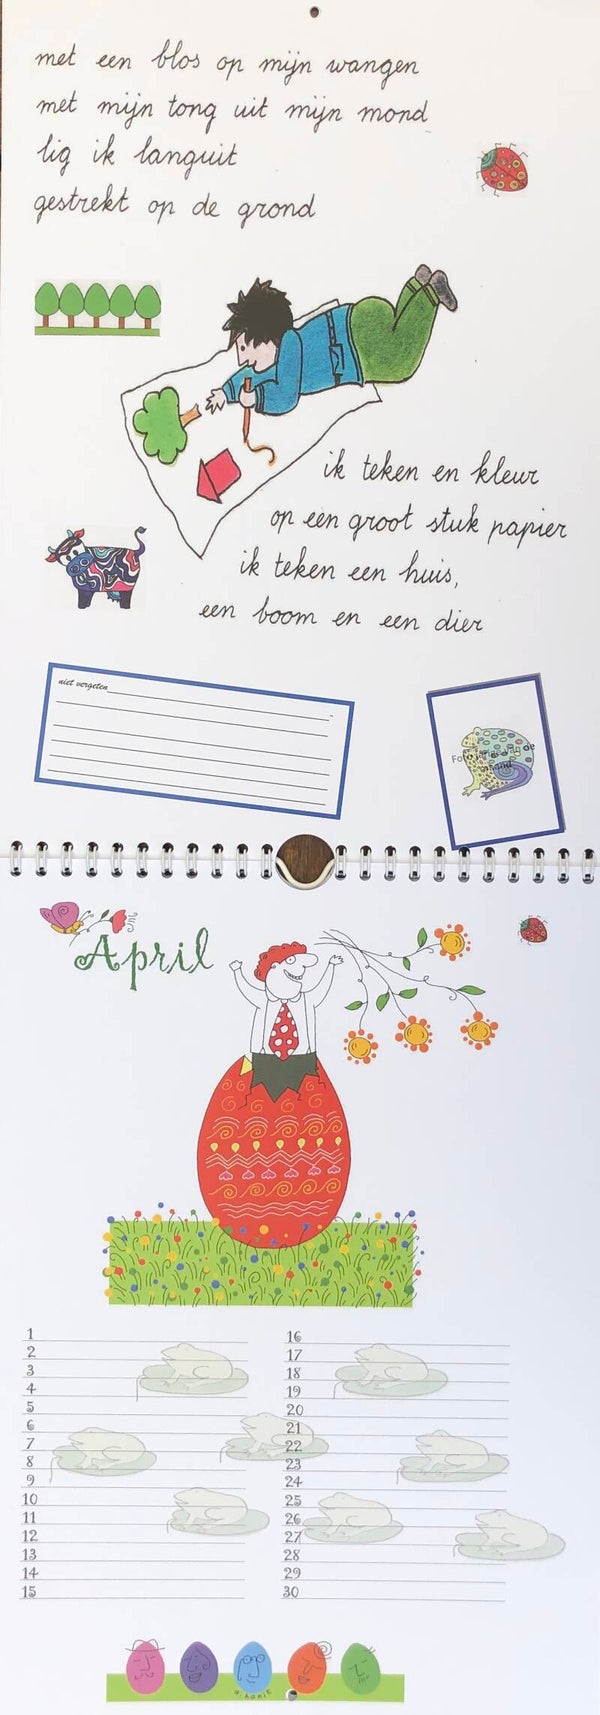 met een blos op mijn wangen
met mijn tong uit mijn mond
lig ik languit
gestrekt op de grond
ik teken en kleur
op een groot stuk papier
ik teken een huis,
een boom en een dier
niet vergeten
April
1
2
3
4
5
6
7
8
9
10
11
12
13
14
15
16
17
18
19
20
21
22
23
24
25
26
27
28
29
30